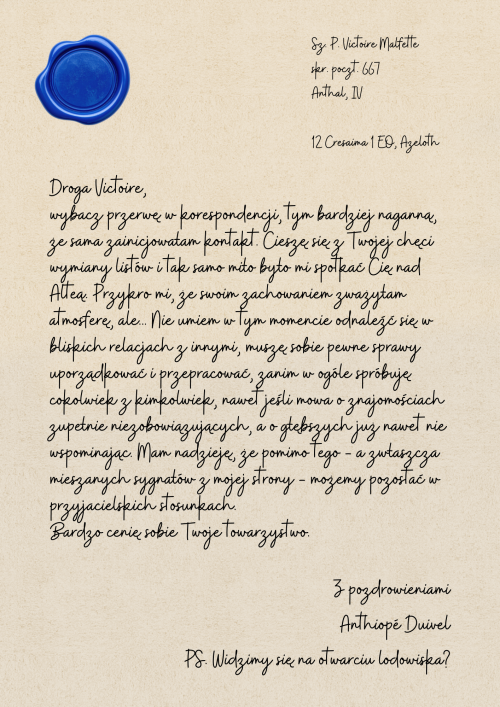 Sz. P. Victoire Malfette
skr. poczt. 667
Anthal, IV
12 Cresaima 1 EO, Azeloth
Droga Victoire,
wybacz przerwę w korespondencji, tym bardziej naganną,
że sama zainicjowałam kontakt. Cieszę się z Twojej chęci
wymiany listów i tak samo miło było mi spotkać Cię nad
Alteą. Przykro mi, że swoim zachowaniem zważyłam
atmosferę, ale... Nie umiem w tym momencie odnaleźć się w
bliskich relacjach z innymi, muszę sobie pewne sprawy
uporządkować i przepracować, zanim w ogóle spróbuję
cokolwiek z kimkolwiek, nawet jeśli mowa o znajomościach
zupełnie niezobowiązujących, a o głębszych już nawet nie
wspominając. Mam nadzieję, że pomimo tego - a zwłaszcza
mieszanych sygnałów z mojej strony - możemy pozostać w
przyjacielskich stosunkach.
Bardzo cenię sobie Twoje towarzystwo.
Z pozdrowieniami
Anthiopé Duivel
PS. Widzimy się na otwarciu lodowiska?